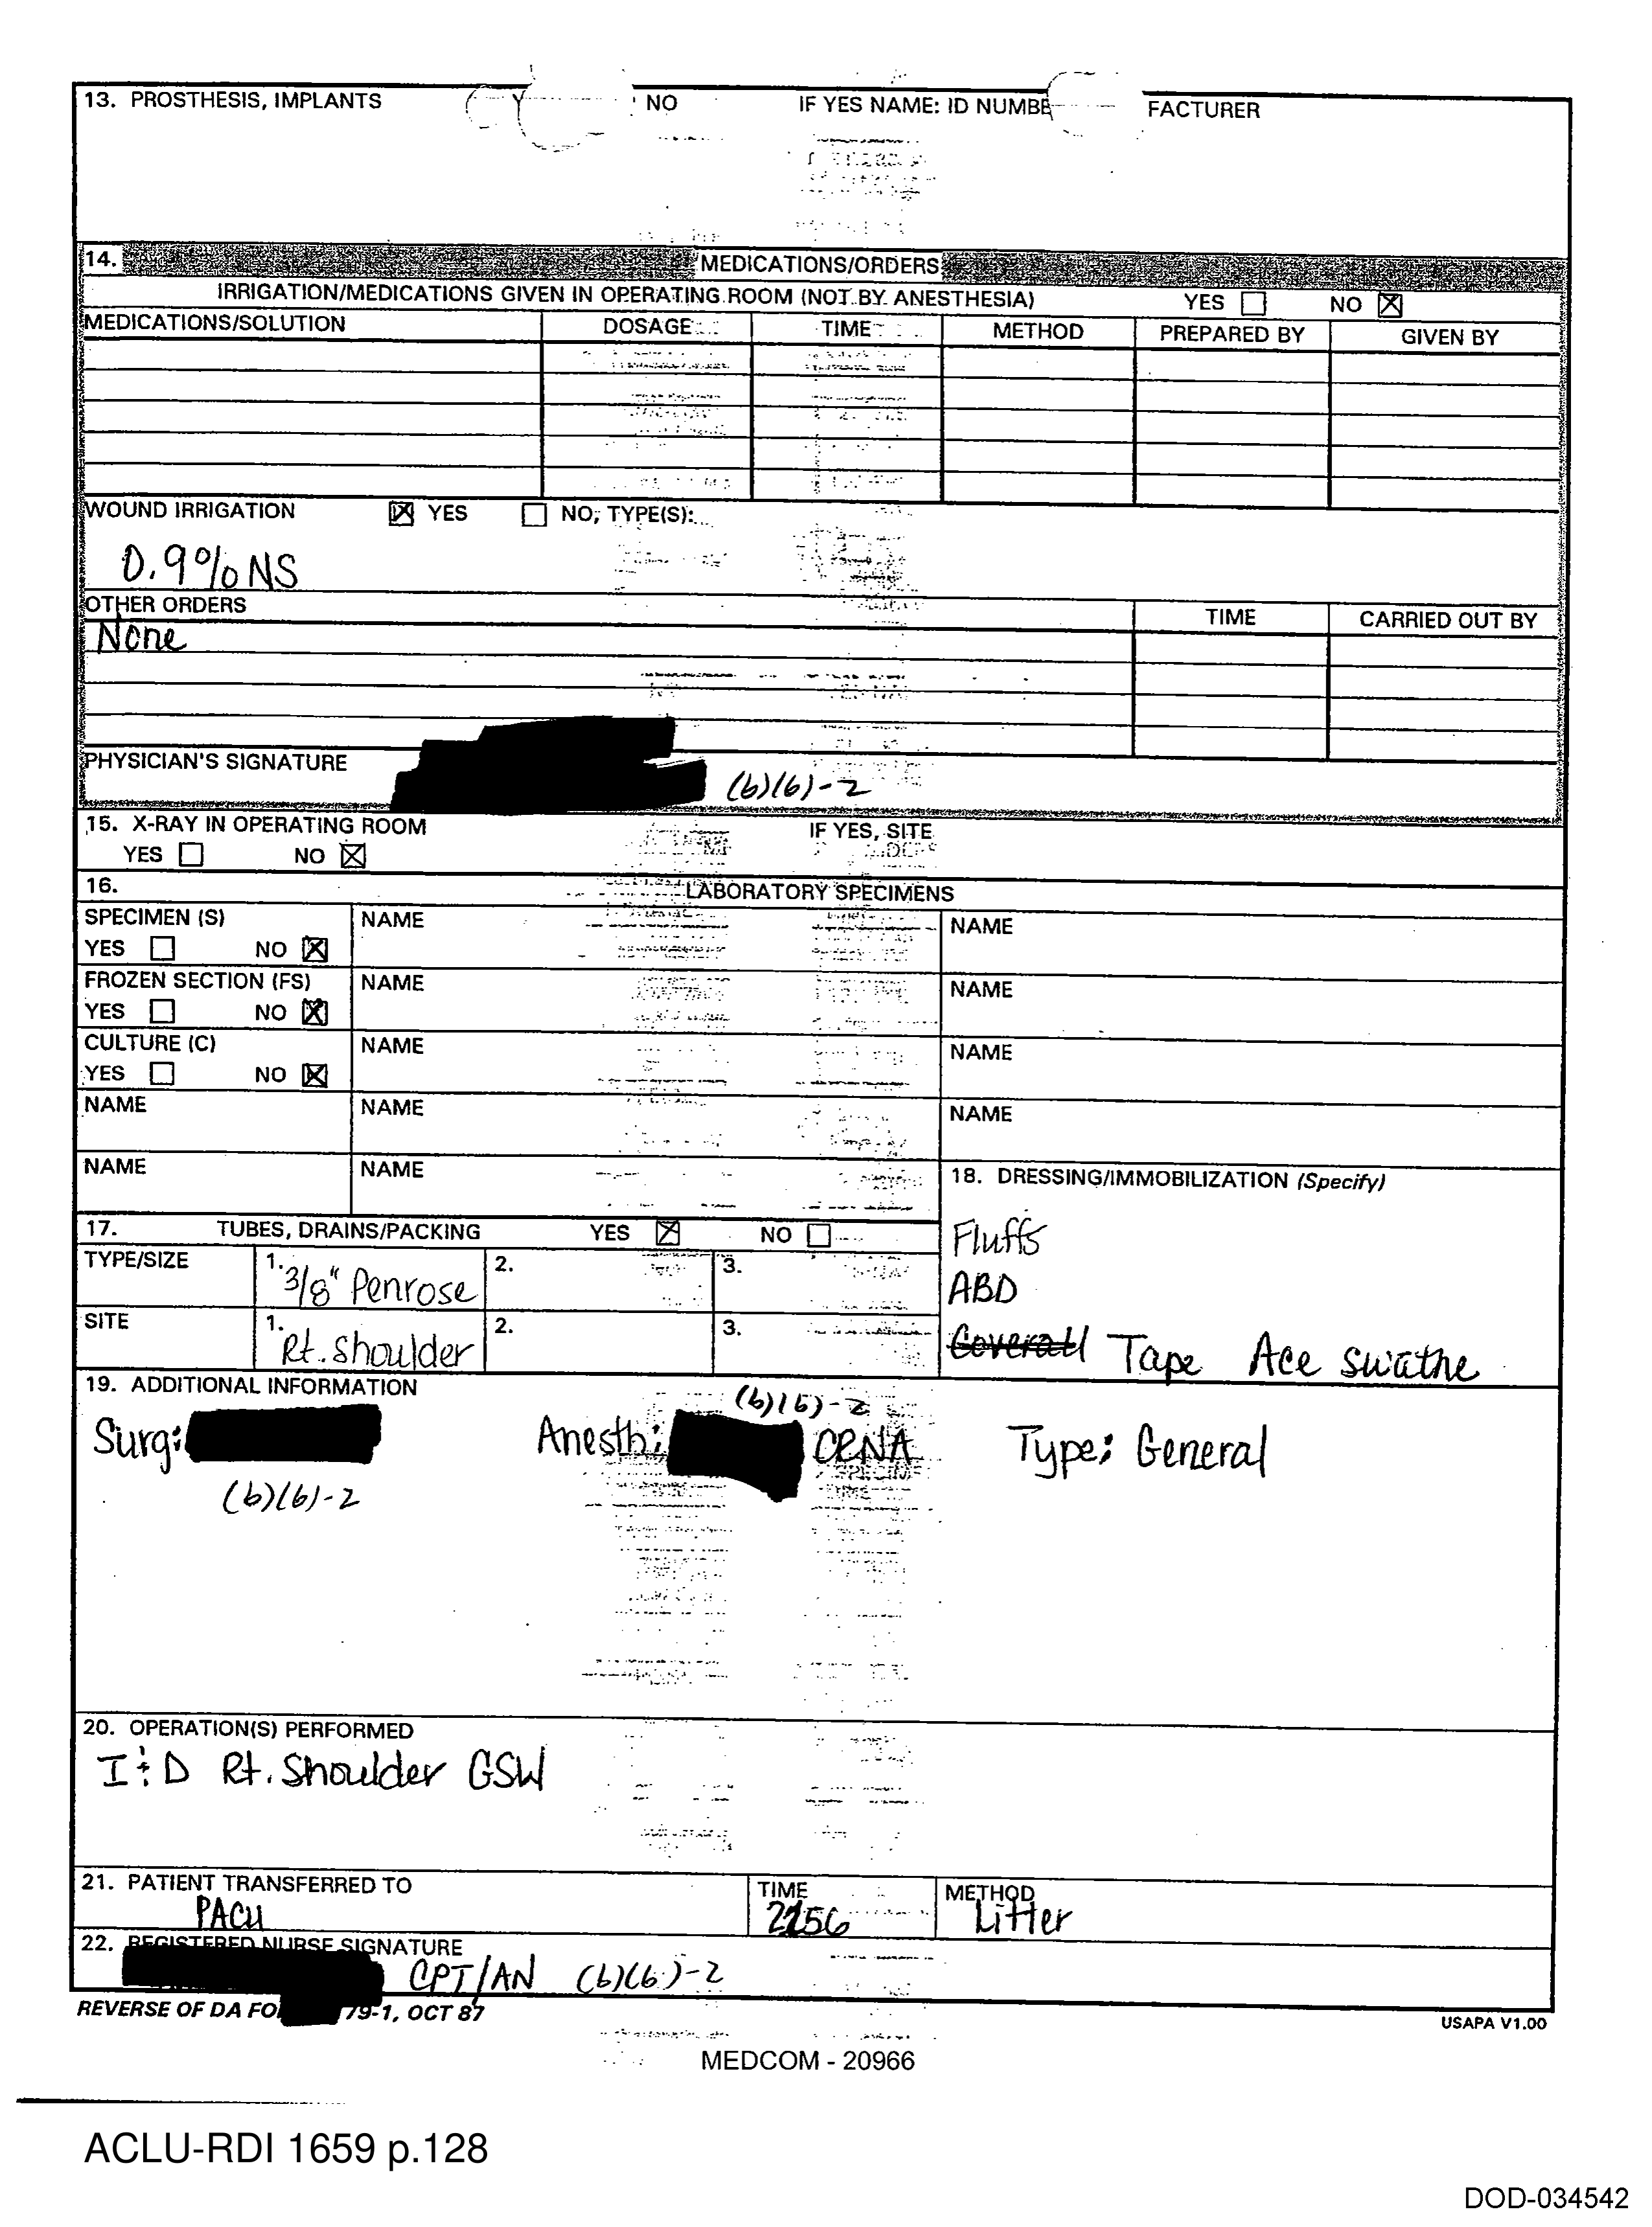 13. PROSTHESIS, IMPLANTS Y NO IF YES NAME: ID NUMBE FACTURER
14. MEDICATIONS/ORDERS
IRRIGATION/MEDICATIONS GIVEN IN OPERATING ROOM (NOT BY ANESTHESIA) YES ☐ NO ☒
MEDICATIONS/SOLUTION DOSAGE TIME METHOD PREPARED BY GIVEN BY
WOUND IRRIGATION ☒ YES ☐ NO, TYPE(S):
0.9% NS
OTHER ORDERS TIME CARRIED OUT BY
None
PHYSICIAN'S SIGNATURE (b)(6)-2
15. X-RAY IN OPERATING ROOM IF YES, SITE
YES ☐ NO ☒
16. LABORATORY SPECIMENS
SPECIMEN (S) NAME NAME
YES ☐ NO ☒
FROZEN SECTION (FS) NAME NAME
YES ☐ NO ☒
CULTURE (C) NAME NAME
YES ☐ NO ☒
NAME NAME NAME
NAME NAME
17. TUBES, DRAINS/PACKING YES ☒ NO ☐
TYPE/SIZE 1. 3/8" Penrose 2. 3.
SITE 1. Rt. Shoulder 2. 3.
18. DRESSING/IMMOBILIZATION (Specify)
Fluffs
ABD
Coverall Tape Ace swathe
19. ADDITIONAL INFORMATION
(b)(6)-2
Surg: Anesth: CRNA Type: General
(b)(6)-2
20. OPERATION(S) PERFORMED
I & D Rt. Shoulder GSW
21. PATIENT TRANSFERRED TO TIME METHOD
PACU 2256 Litter
22. REGISTERED NURSE SIGNATURE
CPT/AN (b)(6)-2
REVERSE OF DA FO 79-1, OCT 87
USAPA V1.00
MEDCOM - 20966
ACLU-RDI 1659 p.128
DOD-034542